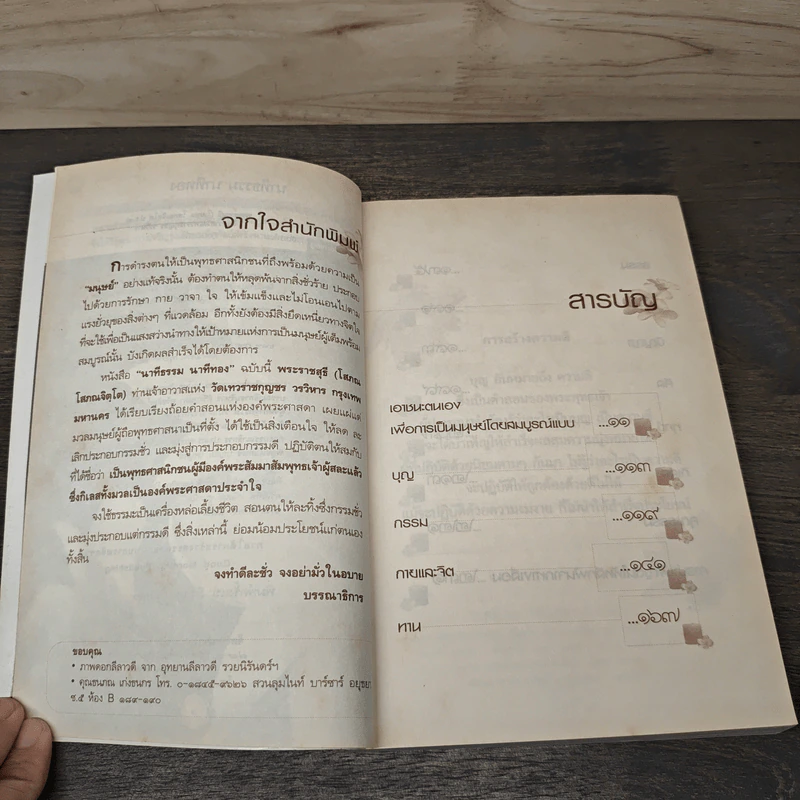 จากใจสำนักพิมพ์
การดำรงตนให้เป็นพุทธศาสนิกชนที่ถึงพร้อมด้วยความเป็น
"มนุษย์" อย่างแท้จริงนั้น ต้องทำตนให้หลุดพ้นจากสิ่งชั่วร้าย ประกอบ
ไปด้วยการรักษา กาย วาจา ใจ ให้เข้มแข็งและไม่โอนเอนไปตาม
แรงยั่วยุของสิ่งต่างๆ ที่แวดล้อม อีกทั้งยังต้องมีสิ่งยึดเหนี่ยวทางจิตใจ
ที่จะใช้เพื่อเป็นแสงสว่างนำทางให้เป้าหมายแห่งการเป็นมนุษย์ผู้เต็มพร้อม
สมบูรณ์นั้น บังเกิดผลสำเร็จได้โดยต้องการ
หนังสือ "นาทีธรรม นาทีทอง" ฉบับนี้ พระราชสุธี (โสภณ
โสภณจิตฺโต) ท่านเจ้าอาวาสแห่ง วัดเทวราชกุญชร วรวิหาร กรุงเทพ
มหานคร ได้เรียบเรียงถ้อยคำสอนแห่งองค์พระศาสดา เผยแผ่แด่
มวลมนุษย์ผู้ถือพุทธศาสนาเป็นที่ตั้ง ได้ใช้เป็นสิ่งเตือนใจ ให้ลด ละ
เลิกประกอบกรรมชั่ว และมุ่งสู่การประกอบกรรมดี ปฏิบัติตนให้สมกับ
ที่ได้ชื่อว่า เป็นพุทธศาสนิกชนผู้มีองค์พระสัมมาสัมพุทธเจ้าผู้สละแล้ว
ซึ่งกิเลสทั้งมวลเป็นองค์พระศาสดาประจำใจ
จงใช้ธรรมะเป็นเครื่องหล่อเลี้ยงชีวิต สอนตนให้ละทิ้งซึ่งกรรมชั่ว
และมุ่งประกอบแต่กรรมดี ซึ่งสิ่งเหล่านี้ ย่อมน้อมประโยชน์แก่ตนเอง
ทั้งสิ้น
จงทำดีละชั่ว จงอย่ามั่วในอบาย
บรรณาธิการ
ขอบคุณ
• ภาพดอกลีลาวดี จาก อุทยานลีลาวดี รวยนิรันดร์ฯ
• คุณธนภณ เก่งธนกร โทร. ๐-๑๘๔๕-๙๖๒๖ สวนลุมไนท์ บาร์ซาร์ อยุธยา
ซ.๕ ห้อง B ๑๘๙-๑๙๐
สารบัญ
เอาชนะตนเอง
เพื่อการเป็นมนุษย์โดยสมบูรณ์แบบ ...๑๑
บุญ ...๑๑๓
กรรม ...๑๑๙
กายและจิต ...๑๔๑
ทาน ...๑๖๗